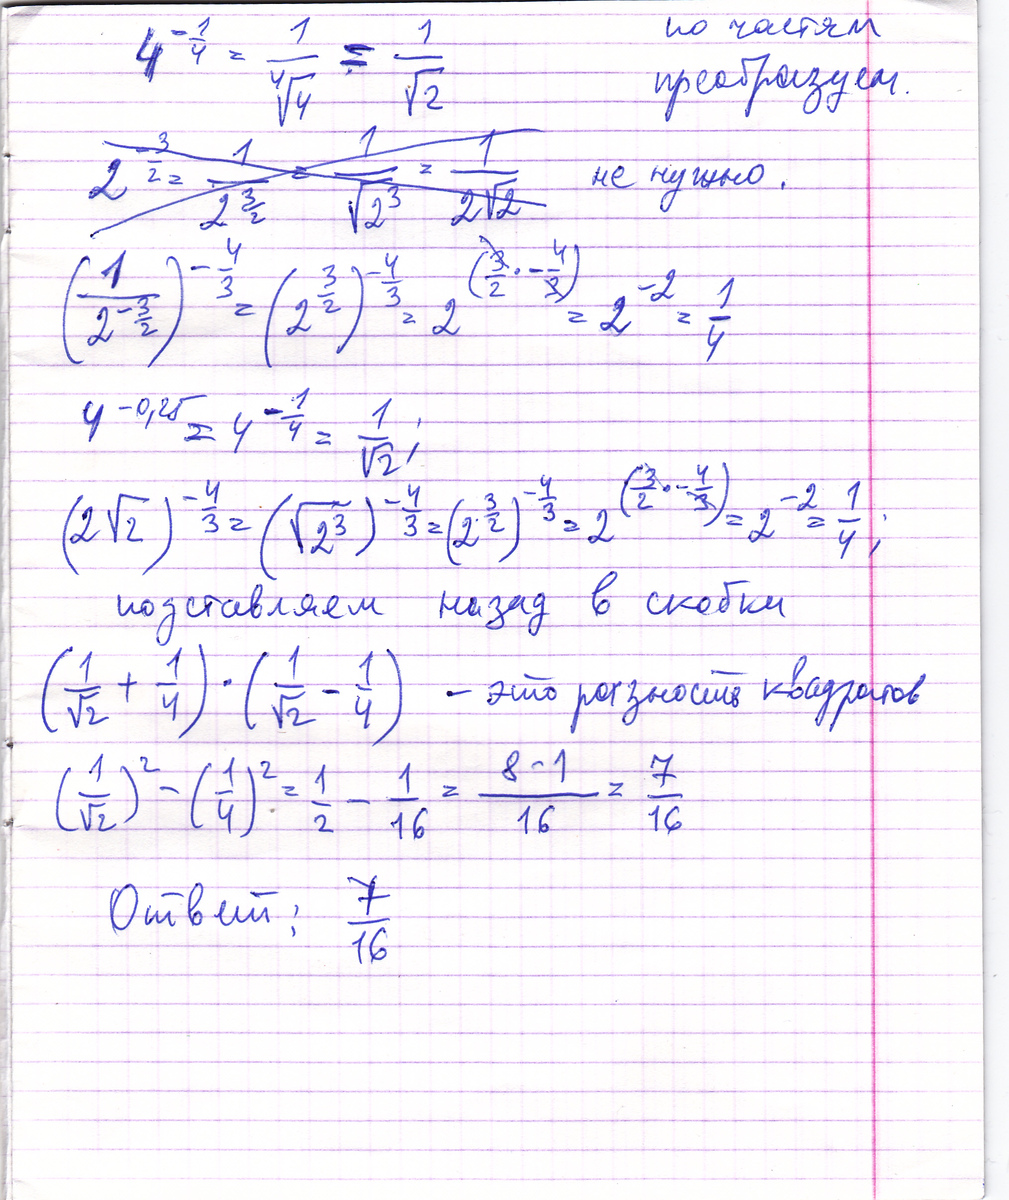 4^{-1/4} = 1/⁴√4 = 1/√2 по частям преобразуем.
2^{-3/2} = 1/2^{3/2} = 1/√2³ = 1/2√2 не нужно.
(1/2^{-3/2})^{-4/3} = (2^{3/2})^{-4/3} = 2^{(3/2 · -4/3)} = 2^{-2} = 1/4
4^{-0,25} = 4^{-1/4} = 1/√2;
(2√2)^{-4/3} = (√2³)^{-4/3} = (2^{3/2})^{-4/3} = 2^{(3/2 · -4/3)} = 2^{-2} = 1/4;
подставляем назад в скобки
(1/√2 + 1/4) · (1/√2 - 1/4) - это разность квадратов
(1/√2)² - (1/4)² = 1/2 - 1/16 = 8-1/16 = 7/16
Ответ: 7/16